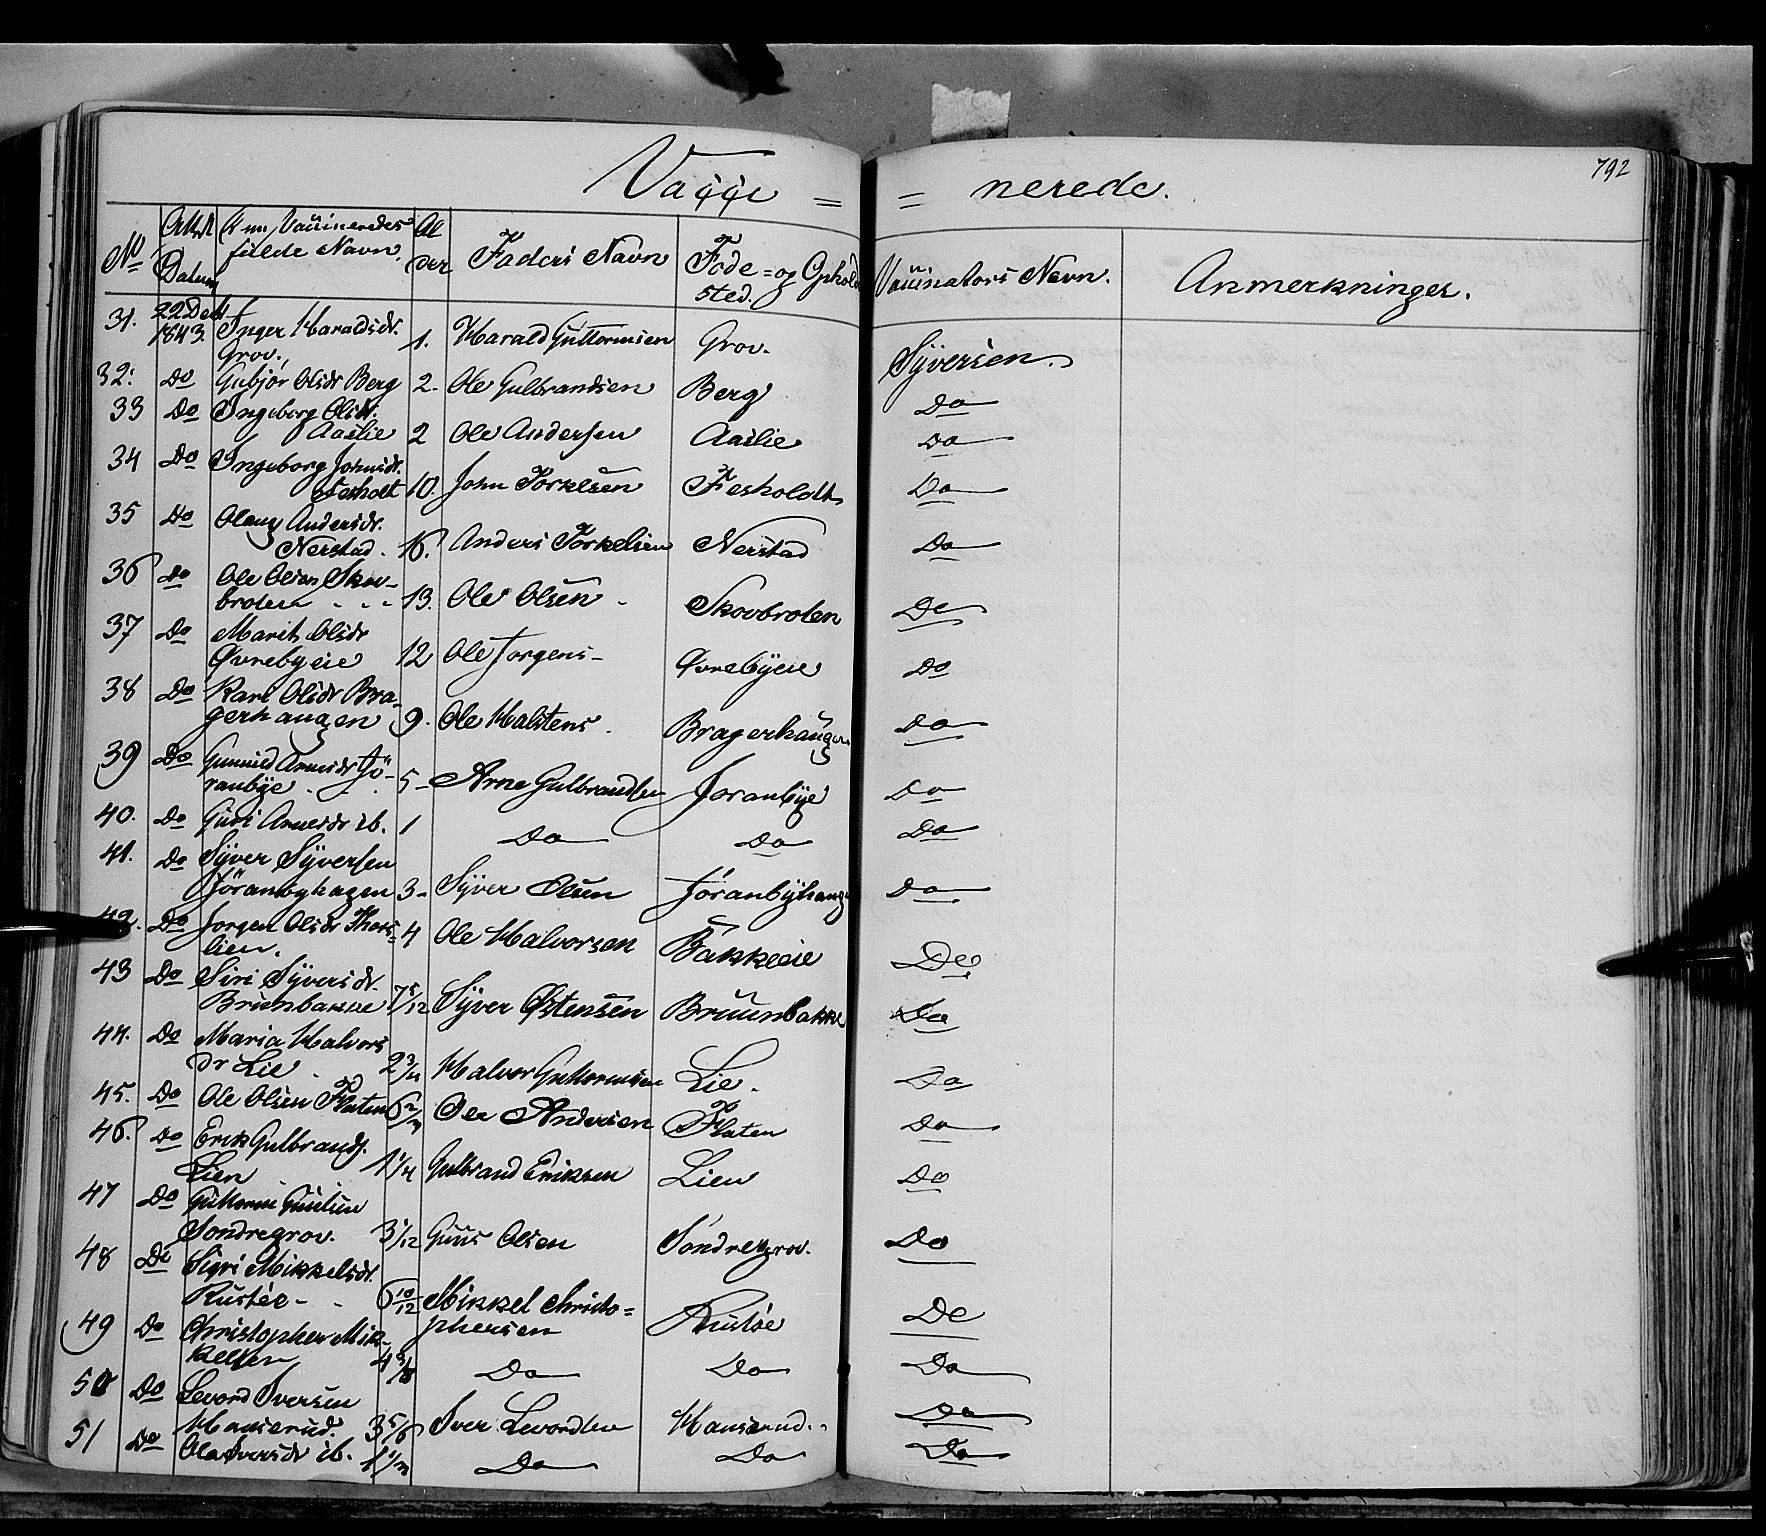 792
Vacci = = nerede.
No Att. Datum, Den Vaccineredes fulde Navn. Alder Faders Navn Føde= og Opholdsted. Vaccinators Navn. Anmerkninger.
31. 22 Dec 1843. Inger Haraldsdr. Grov. 1. Harald Guttormsen Grov. Syversen.
32. Do Gubjør Olsdr Berg 2. Ole Gulbrandsen Berg Do
33 Do Ingeborg Olsdr. Aaslie 2 Ole Andersen Aaslie Do
34 Do Ingeborg Johnsdr. Fesholt 10. John Torkelsen Fesholdt Do
35 Do Olaug Andersdr. Nerstad. 16. Anders Torkelsen Nerstad Do
36 Do Ole Olsen Skovbroten 13. Ole Olsen Skovbroten Do
37 Do Marit Olsdr Øvrebyeie 12 Ole Jorgens- Øvrebyeie Do
38 Do Kari Olsdr Bragerhaugen 9. Ole Halstens. Bragerhaugen Do
39 Do Gunnild Arnesdr Jöranbye 5- Arne Gulbrandsen Joranbye Do
40. Do Guri Arnesdr ib. 1 Do Do Do
41. Do Syver Syversen Jöranbyhagen 3- Syver Olsen Joranbyhaug Do
42. Do Jorgen Olsdr Thorslien. 4 Ole Halvorsen Bakkeeie Do
43 Do Siri Syversdr. Bruunbakke 7 5/12 Syver Østensen Bruunbakke Do
44. Do Maria Halvorsdr Lie 2 3/4 Halvor Guttormsen Lie. Do
45. Do Ole Olsen Flaten 6 2/3 Ole Andersen Flaten Do
46. Do Erik Gulbrands. Lien 1 1/4 Gulbrand Eriksen Lien Do
47 Do Guttorm Guulsen Sondregrov. 3 1/12 Olsen Sondregrov. Do
48 Do Sigri Mikkelsdr. Rustøe- 6 10/12 Mikkel Christophersen Rustøe Do
49 Do Christopher Mikkelsen 4 Do Do Do
50 Do Levord Iversen Hanserud. 3 5/6 Iver Levordsen Hanserud. Do
51 Do Ola Iversdr ib. 1 1/3 Do Do Do